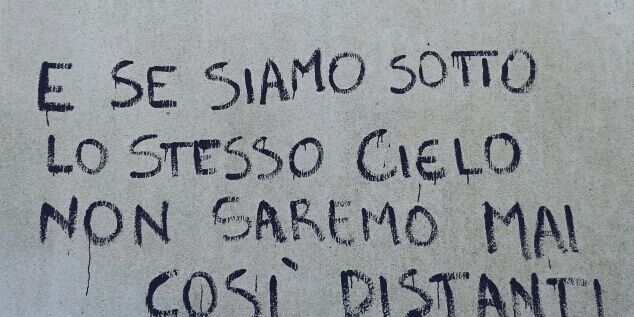 E SE SIAMO SOTTO
LO STESSO CIELO
NON SAREMO MAI
COSÌ DISTANTI